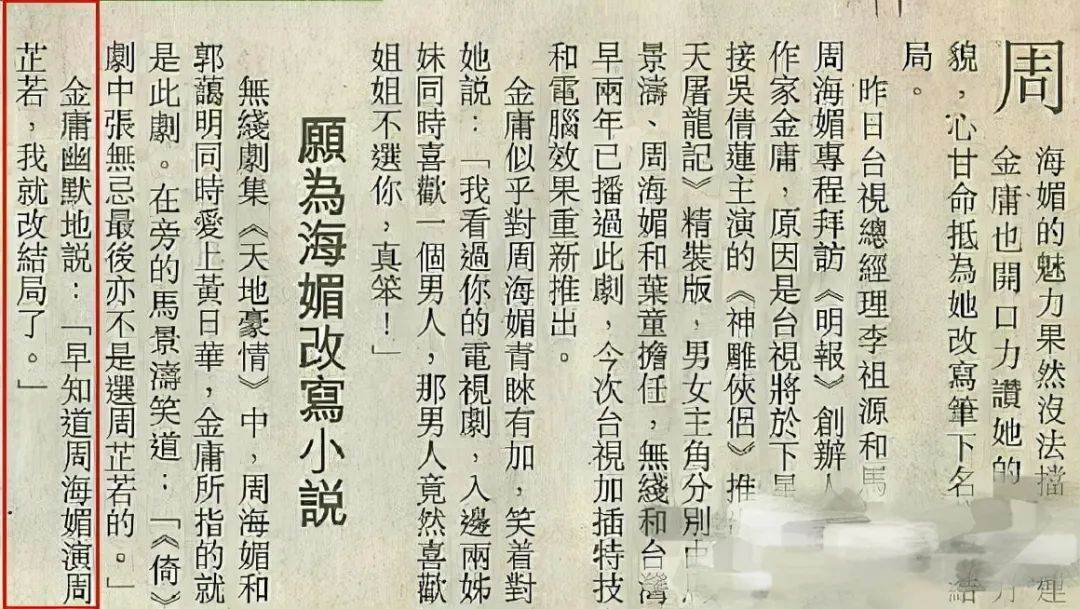 周
海媚的魅力果然沒法擋
連
金庸也開口力讚她的
貌，心甘命抵為她改寫筆下名
結
局。
昨日台視總經理李祖源和馬
周海媚專程拜訪《明報》創辦人
作家金庸，原因是台視將於下星
接吳倩蓮主演的《神雕俠侶》推
天屠龍記》精裝版，男女主角分別由
景濤、周海媚和葉童擔任，無綫和台灣
早兩年已播過此劇，今次台視加插特技
和電腦效果重新推出。
金庸似乎對周海媚青睞有加，笑着對
她説：「我看過你的電視劇，入邊兩姊
妹同時喜歡一個男人，那男人竟然喜歡
姐姐不選你，真笨！」
願為海媚改寫小説
無綫劇集《天地豪情》中，周海媚和
郭藹明同時愛上黃日華，金庸所指的就
是此劇。在旁的馬景濤笑道：「《倚》
劇中張無忌最後亦不是選周芷若的。」
金庸幽默地説：「早知道周海媚演周
芷若，我就改結局了。」